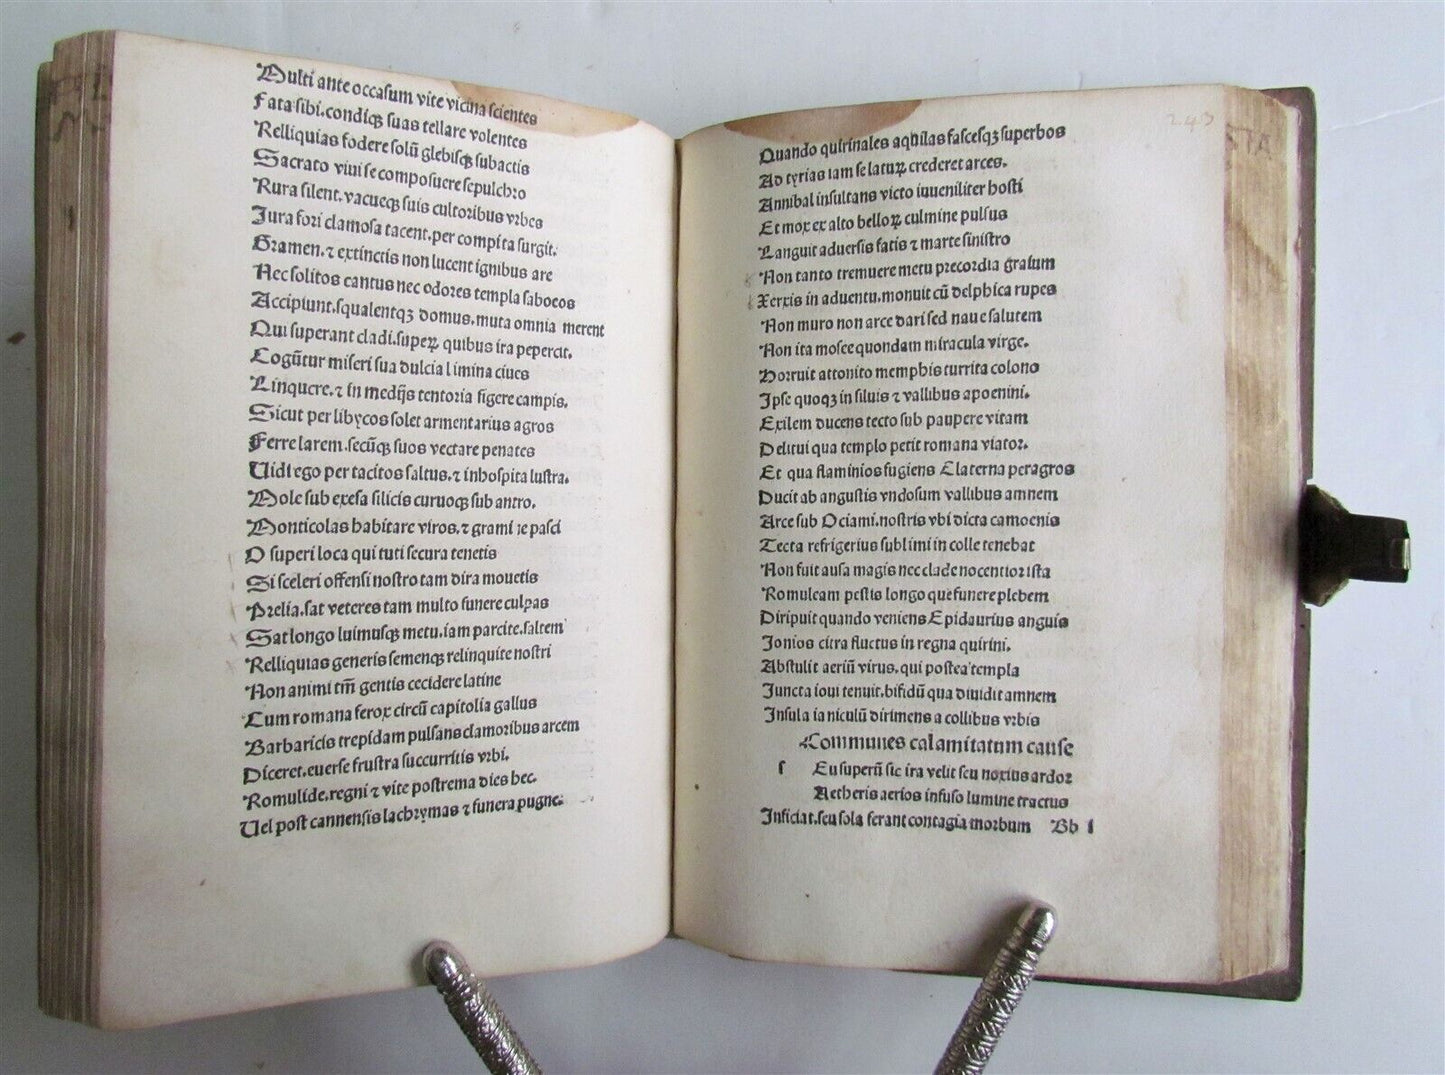 Multi ante occasum vite vicina scientes
Fata sibi.condiqꝫ suas tellure volentes
Relliquias fodere solū glebisqꝫ subactis
Sacrato viui se composuere sepulchro
Rura silent.vacueqꝫ suis cultoribus vrbes
Iura fori clamosa tacent.per compita surgit.
Gramen.⁊ extinctis non lucent ignibus are
Nec solitos cantus nec odores templa sabocos
Accipiunt.squalentqꝫ domus.muta omnia merent
Qui superant cladi.superꝝ quibus ira pepercit.
Cogūtur miseri sua dulcia limina ciues
Linquere.⁊ in medijs tentoria figere campis.
Sicut per libycos solet armentarius agros
Ferre larem.secūqꝫ suos vectare penates
Uidi ego per tacitos saltus.⁊ inhospita lustra.
Mole sub exesa silicis curuoqꝫ sub antro.
Monticolas habitare viros.⁊ gramine pasci
O superi loca qui tuti secura tenetis
Si sceleri offensi nostro tam dira mouetis
Prelia.sat veteres tam multo funere culpas
Sat longo luimusqꝫ metu.iam parcite.saltem
Relliquias generis semenqꝫ relinquite nostri
Non animi tm̄ gentis cecidere latine
Cum romana ferox circū capitolia gallus
Barbaricis trepidam pulsans clamoribus arcem
Diceret.euerse frustra succurritis vrbi.
Romulide.regni ⁊ vite postrema dies hec.
Uel post cannensis lachrymas ⁊ funera pugne.
243
Quando quirinales aquilas fascesqꝫ superbos
Ad tyrias iam se laturꝝ crederet arces.
Annibal insultans victo iuueniliter hosti
Et mox ex alto belloꝝ culmine pulsus
Languit aduersis fatis ⁊ marte sinistro
Non tanto tremuere metu precordia graium
Xerxis in aduentu.monuit cū delphica rupes
Non muro non arce dari sed naue salutem
Non ita mosee quondam miracula virge.
Horruit attonito memphis turrita colono
Ipse quoqꝫ in siluis ⁊ vallibus apoenini.
Exilem ducens tecto sub paupere vitam
Delitui qua templo petit romana viator.
Et qua flaminios fugiens Elaterna peragros
Ducit ab angustis vndosum vallibus amnem
Arce sub Ociami.nostris vbi dicta camoenis
Tecta refrigerius sublimi in colle tenebat
Non fuit ausa magis nec clade nocentior ista
Romuleam pestis longo que funere plebem
Diripuit quando veniens Epidaurius anguis
Ionios citra fluctus in regna quirini.
Abstulit aeriū virus.qui postea templa
Iuncta ioui tenuit.bifidū qua diuidit amnem
Insula ianiculū dirimens a collibus vrbis
Communes calamitatum cause
s Eu superū sic ira velit seu noxius ardor
Aetheris aerios infuso lumine tractus
Inficiat.seu sola ferant contagia morbum Bb 1